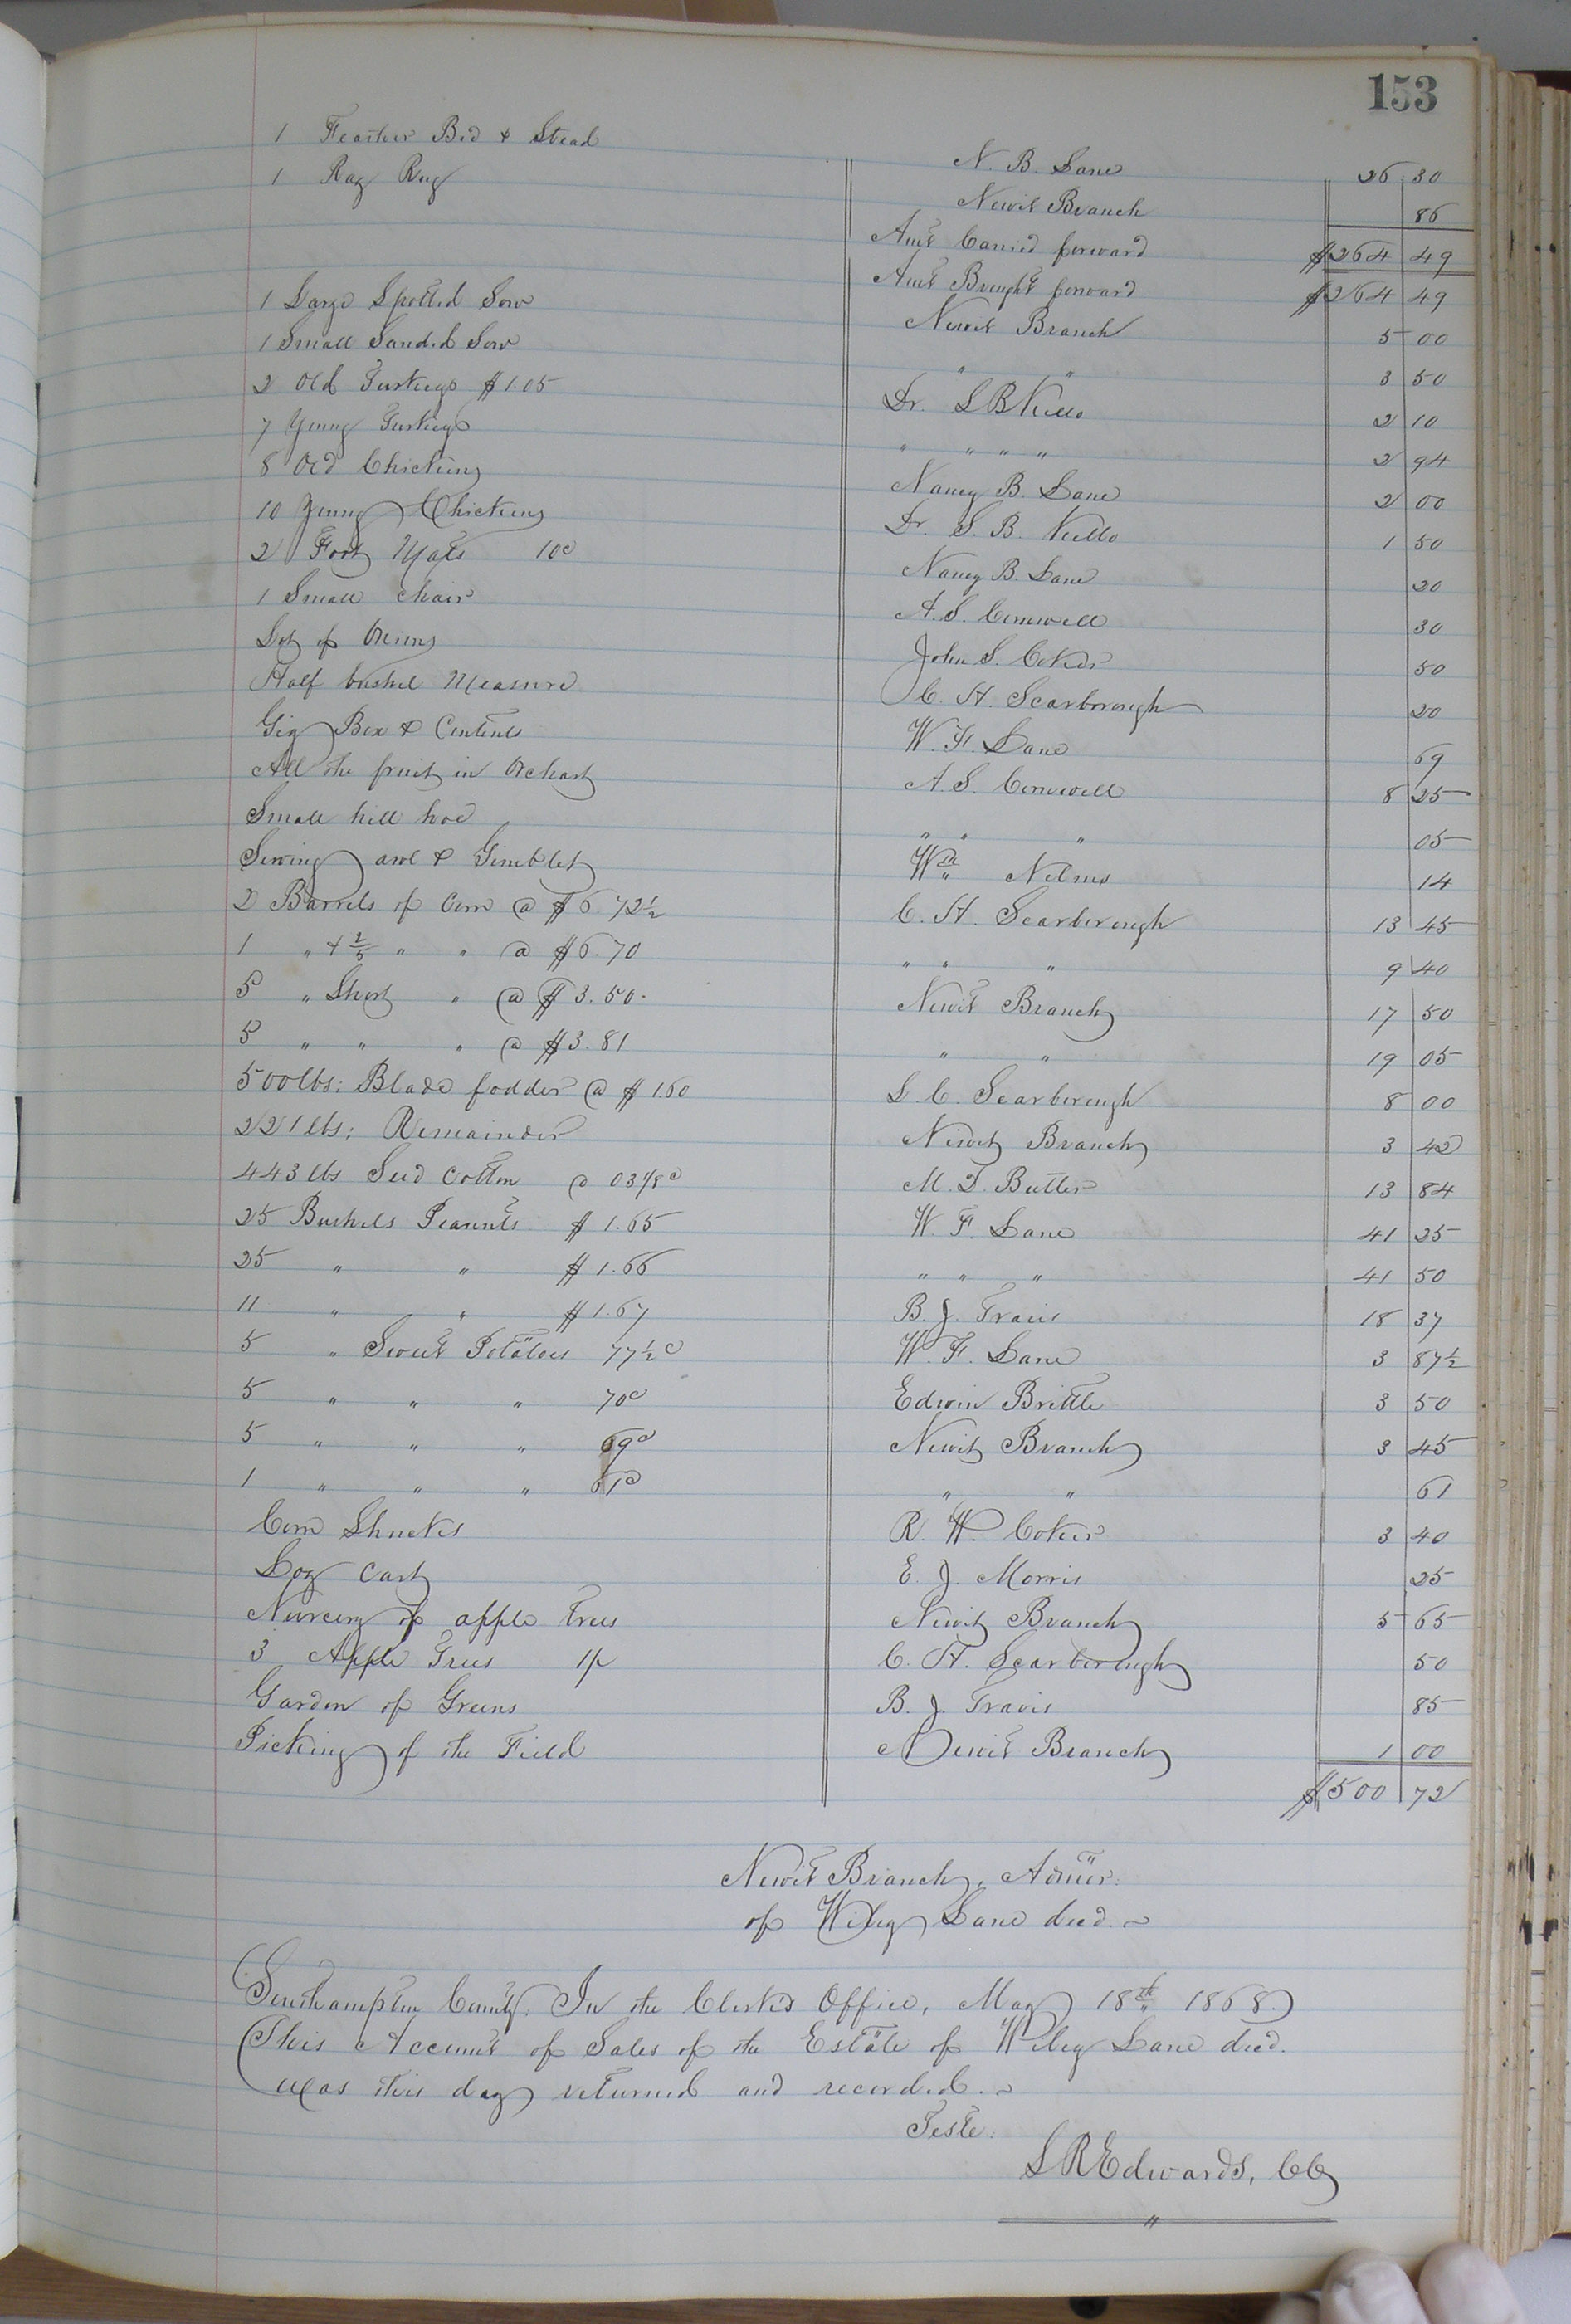 153
1 Feather Bed & Stead N. B. Lane 26 30
1 Rag Rug Newit Branch 86
Amt Carried forward $264 49
Amt Brought forward $264 49
1 Large Spotted Sow Newit Branch 5 00
1 Small Sanded Sow " " 3 50
2 Old Turkeys $1.05 Dr. S B Kello 2 10
7 Young Turkeys " " " " 2 94
8 Old Chickens Nancy B. Lane 2 00
10 Young Chickens Dr. S. B. Kello 1 50
2 Foot Mats 10c Nancy B. Lane 20
1 Small chair A. S. 30
Lot of Onions John S. Coker 50
Half bushel Measure C. H. Scarborough 20
Gig Box & Contents W. F. Lane 69
All the fruit in Orchart A. S. 8 25
Small hill hoe " " " 05
Sewing awl & Gimblet Wm Nelms 14
2 Barrels of Corn @ $6.72½ C. H. Scarborough 13 45
1 " & 2/5 " " @ $6.70 " " " 9 40
5 " Short " @ $3.50. Newit Branch 17 50
5 " " " @ $3.81 " " 19 05
500 lbs: Blade fodder @ $1.60 L. C. Scarborough 8 00
221 lbs; Remainder Newit Branch 3 42
443 lbs Seed Cotton @ 03⅛c M. T. Butler 13 84
25 Bushels Peanuts $1.65 W. F. Lane 41 25
25 " " $1.66 " " " 41 50
11 " " $1.67 B. J. Travis 18 37
5 " Sweet Potatoes 77½c W. F. Lane 3 87½
5 " " " 70c Edwin Brittle 3 50
5 " " " 69c Newit Branch 3 45
1 " " " 61c " " 61
Corn Shucks R. W. Coker 3 40
Log Cart E. J. Morris 25
Nurcery of apple trees Newit Branch 5 65
3 Apple Trees 1/ C. H. Scarborough 50
Garden of Greens B. J. Travis 85
Picking of the Field Newit Branch 1 00
$500 72
Newit Branch, Admr.
of Wiley Lane decd.
Southampton County. In the Clerk's Office, May 18th 1868.
This Account of Sales of the Estate of Wiley Lane decd.
was this day returned and recorded.
Teste:
L R Edwards, CC
"